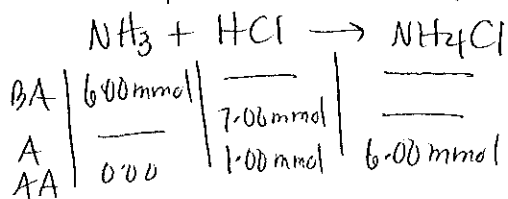 NH3 + HCl → NH4Cl
BA 6.00mmol — —
A — 7.00mmol —
AA 0.00 1.00mmol 6.00mmol